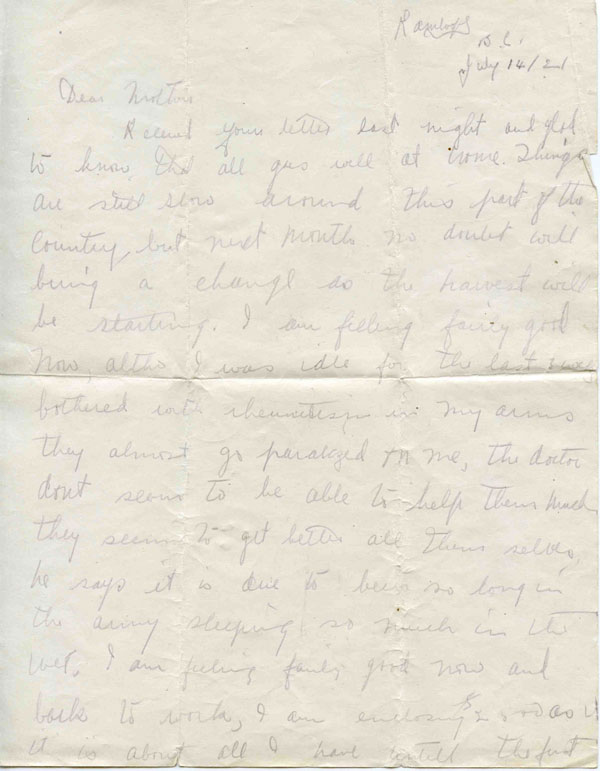 Kamloops
B.C.
July 14/21
Dear Mother
Received your letter last night and glad
to know that all gus well at home. Things
are still slow around this part of the
Country, but next Month no doubt will
bring a change as the harvest will
be starting. I am feeling fairly good
now, altho I was idle for the last
bothered with rheumatism in my arms
they almost go paralized on me, the doctor
dont seem to be able to help them much
they seem to get better all them selves,
he says it is due to being so long in
the army sleeping so much in the
wet. I am feeling fairly good now and
back to work, I am enclosing
it is about all I have untill the first